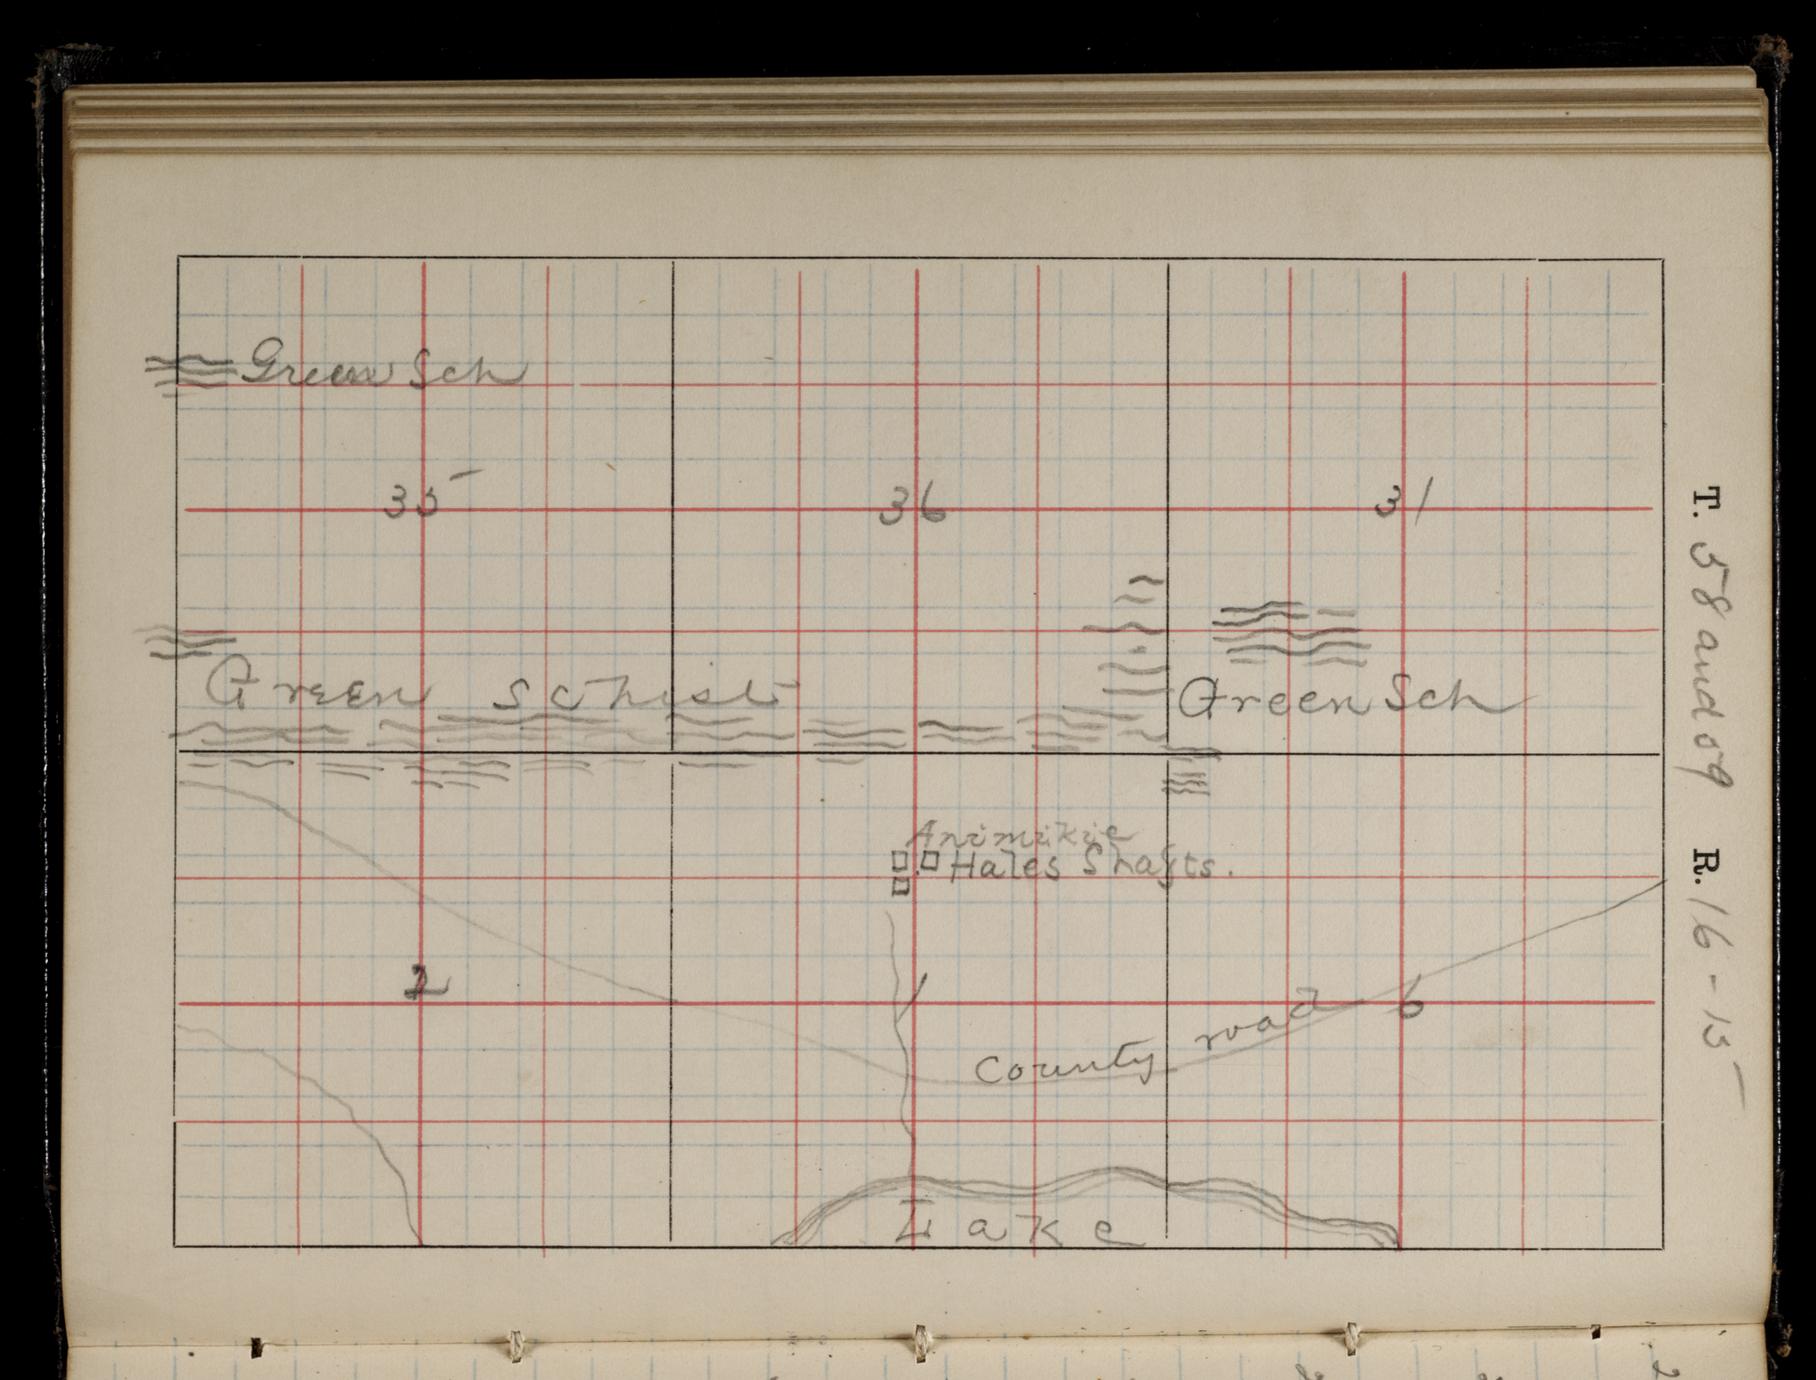 Green Sch
35
36
31
Green Schist
Green Sch
Animikie
Hales Shafts.
2
1
6
County road
Lake
T. 58 and 59 R. 16-15